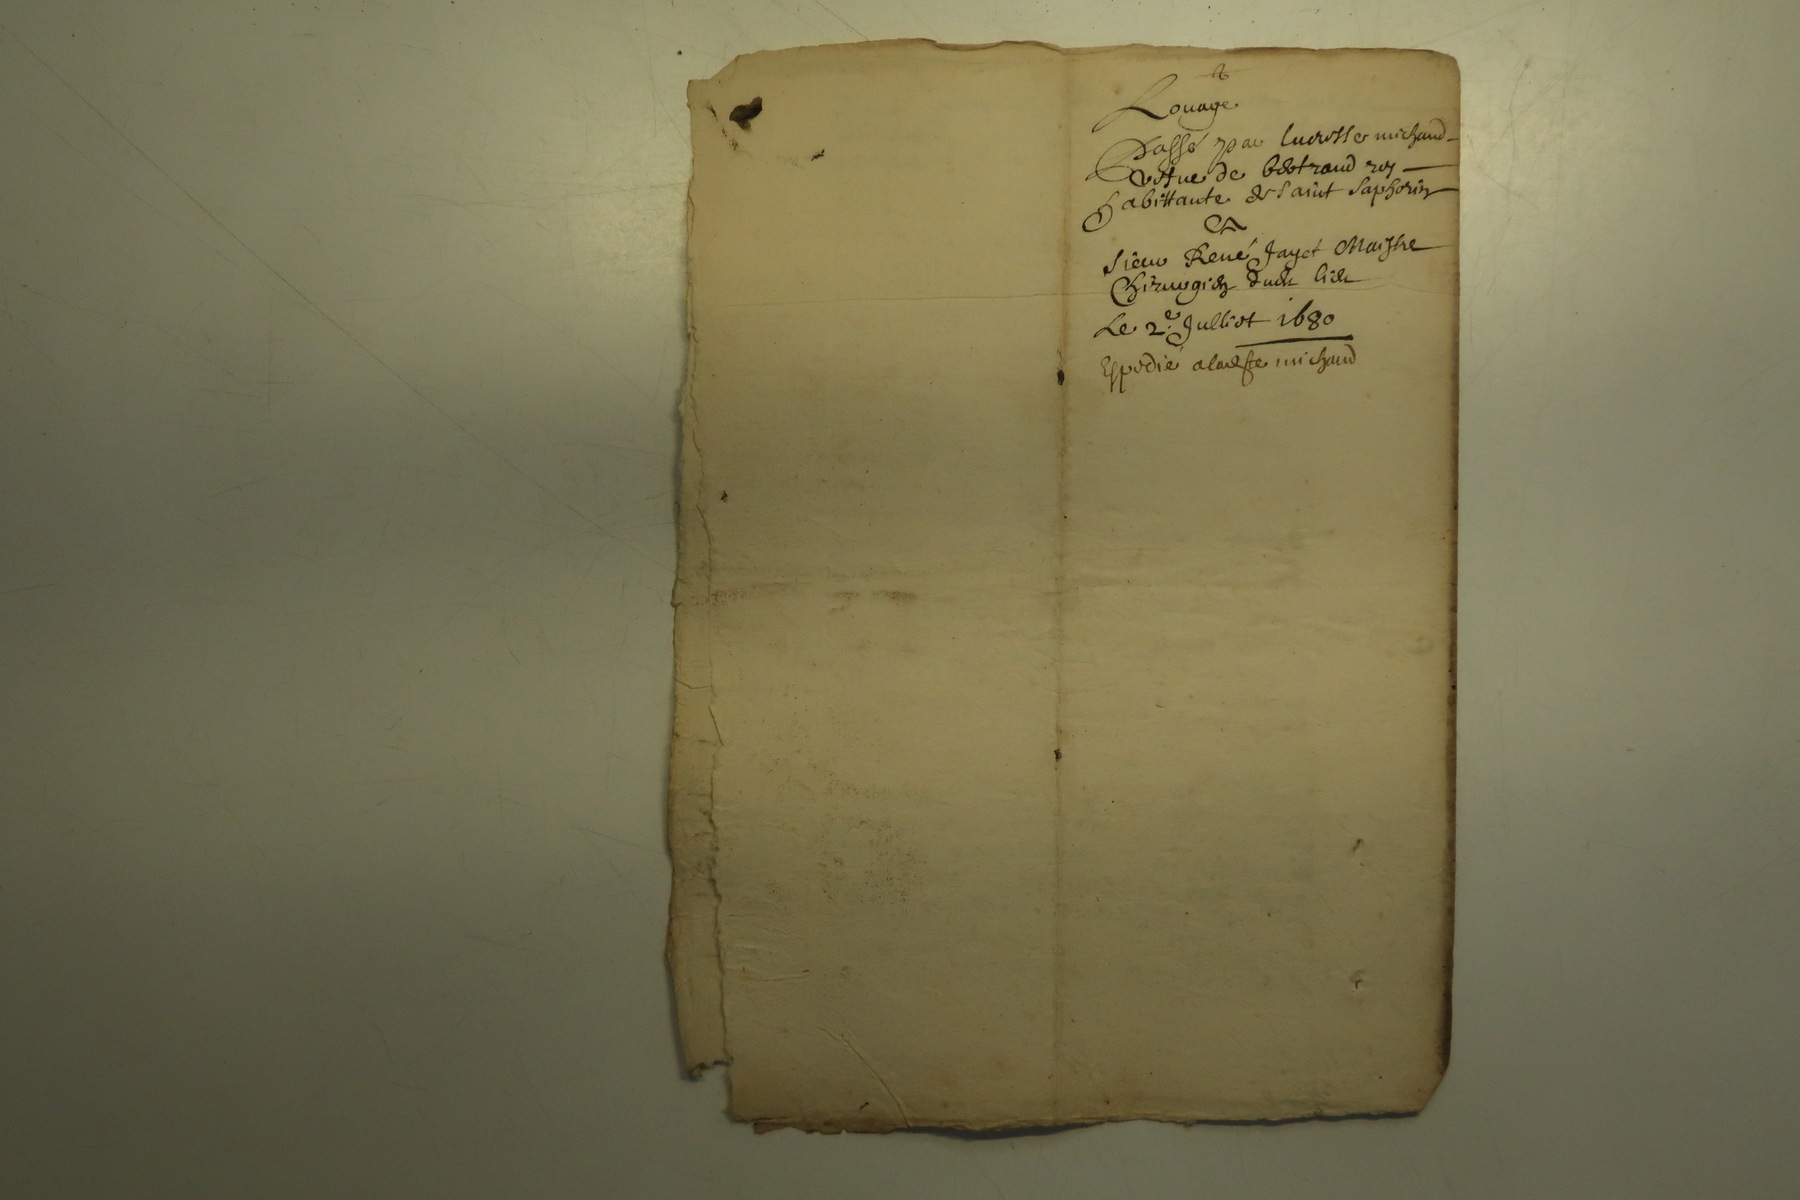 Louage
Passé par lucresse michaud
vefue de bertrand roy
habittante de saint saphorin
A
sieur René Jayet Maistre
Chirurgien dudit lieu
Le 2e Julliet 1680
Expedié a michaud